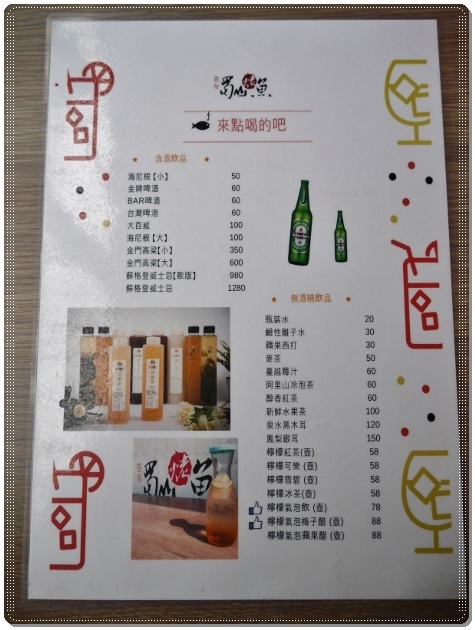 蜀山烤魚
來點喝的吧
★ 含酒飲品 ★
海尼根【小】 50
金牌啤酒 60
BAR啤酒 60
台灣啤酒 60
大百威 100
海尼根【大】 100
金門高粱【小】 350
金門高粱【大】 600
蘇格登威士忌【歐版】 980
蘇格登威士忌 1280
★ 無酒精飲品 ★
瓶裝水 20
鹼性離子水 30
蘋果西打 30
麥茶 50
蔓越莓汁 60
阿里山冷泡茶 60
醇香紅茶 60
新鮮水果茶 100
泉水黑木耳 120
鳳梨銀耳 150
檸檬紅茶(壺) 58
檸檬可樂 (壺) 58
檸檬雪碧 (壺) 58
檸檬冰茶(壺) 58
檸檬氣泡飲 (壺) 78
檸檬氣泡梅子醋 (壺) 88
檸檬氣泡蘋果醋 (壺) 88